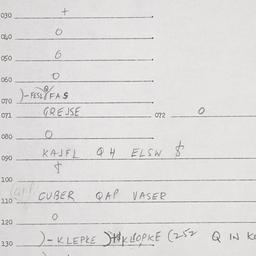 030 +
040 0
050 6
060 0
070 )-FESL FAS
071 GREJSE 072 0
080 0
090 KAJFL Q H ELSN $
100 $
110 CUBER QAP VASER
120 0
130 )-KLEPKE )KLOPKE (252 Q IN